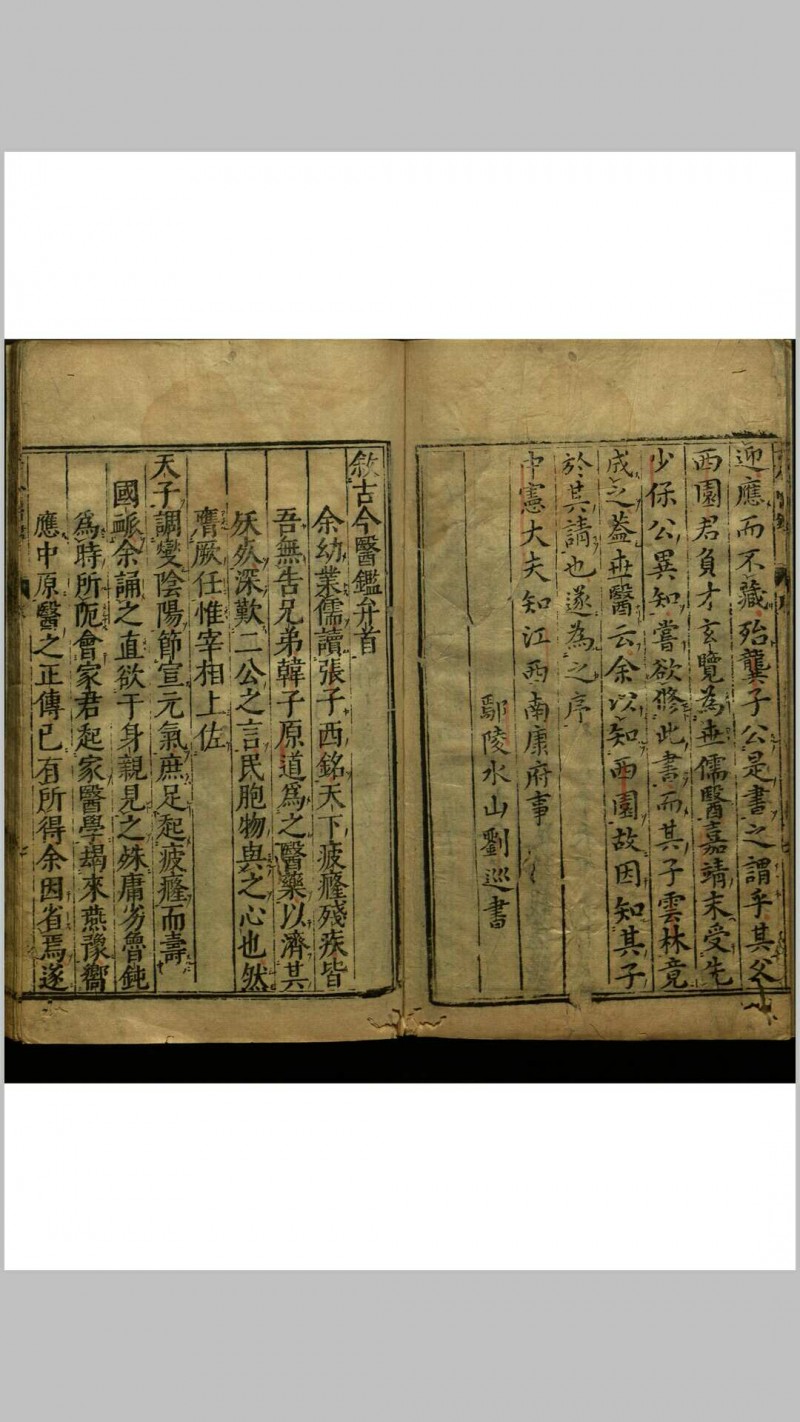 迎應而不藏殆龔子公是書之謂乎其父
西園君負才玄覽為世儒醫嘉靖末受先
少保公異知嘗欲修此書而其子雲林竟
成之葢世醫云余以知西園故因知其子
於其請也遂為之序
中憲大夫知江西南康府事
鄢陵水山劉巡書
敘古今醫鑑弁首
余幼業儒讀張子西銘天下疲癃殘疾皆
吾無告兄弟韓子原道爲之醫藥以濟其
夭灾深歎二公之言民胞物與之心也然
膺厥任惟宰相上佐
天子調燮陰陽節宣元氣庶足起疲癃而壽
國脈余誦之直欲于身親見之殊庸劣魯鈍
爲時所阨會家君起家醫學朅來燕豫嚮
應中原醫之正傳已有所得余因省焉遂